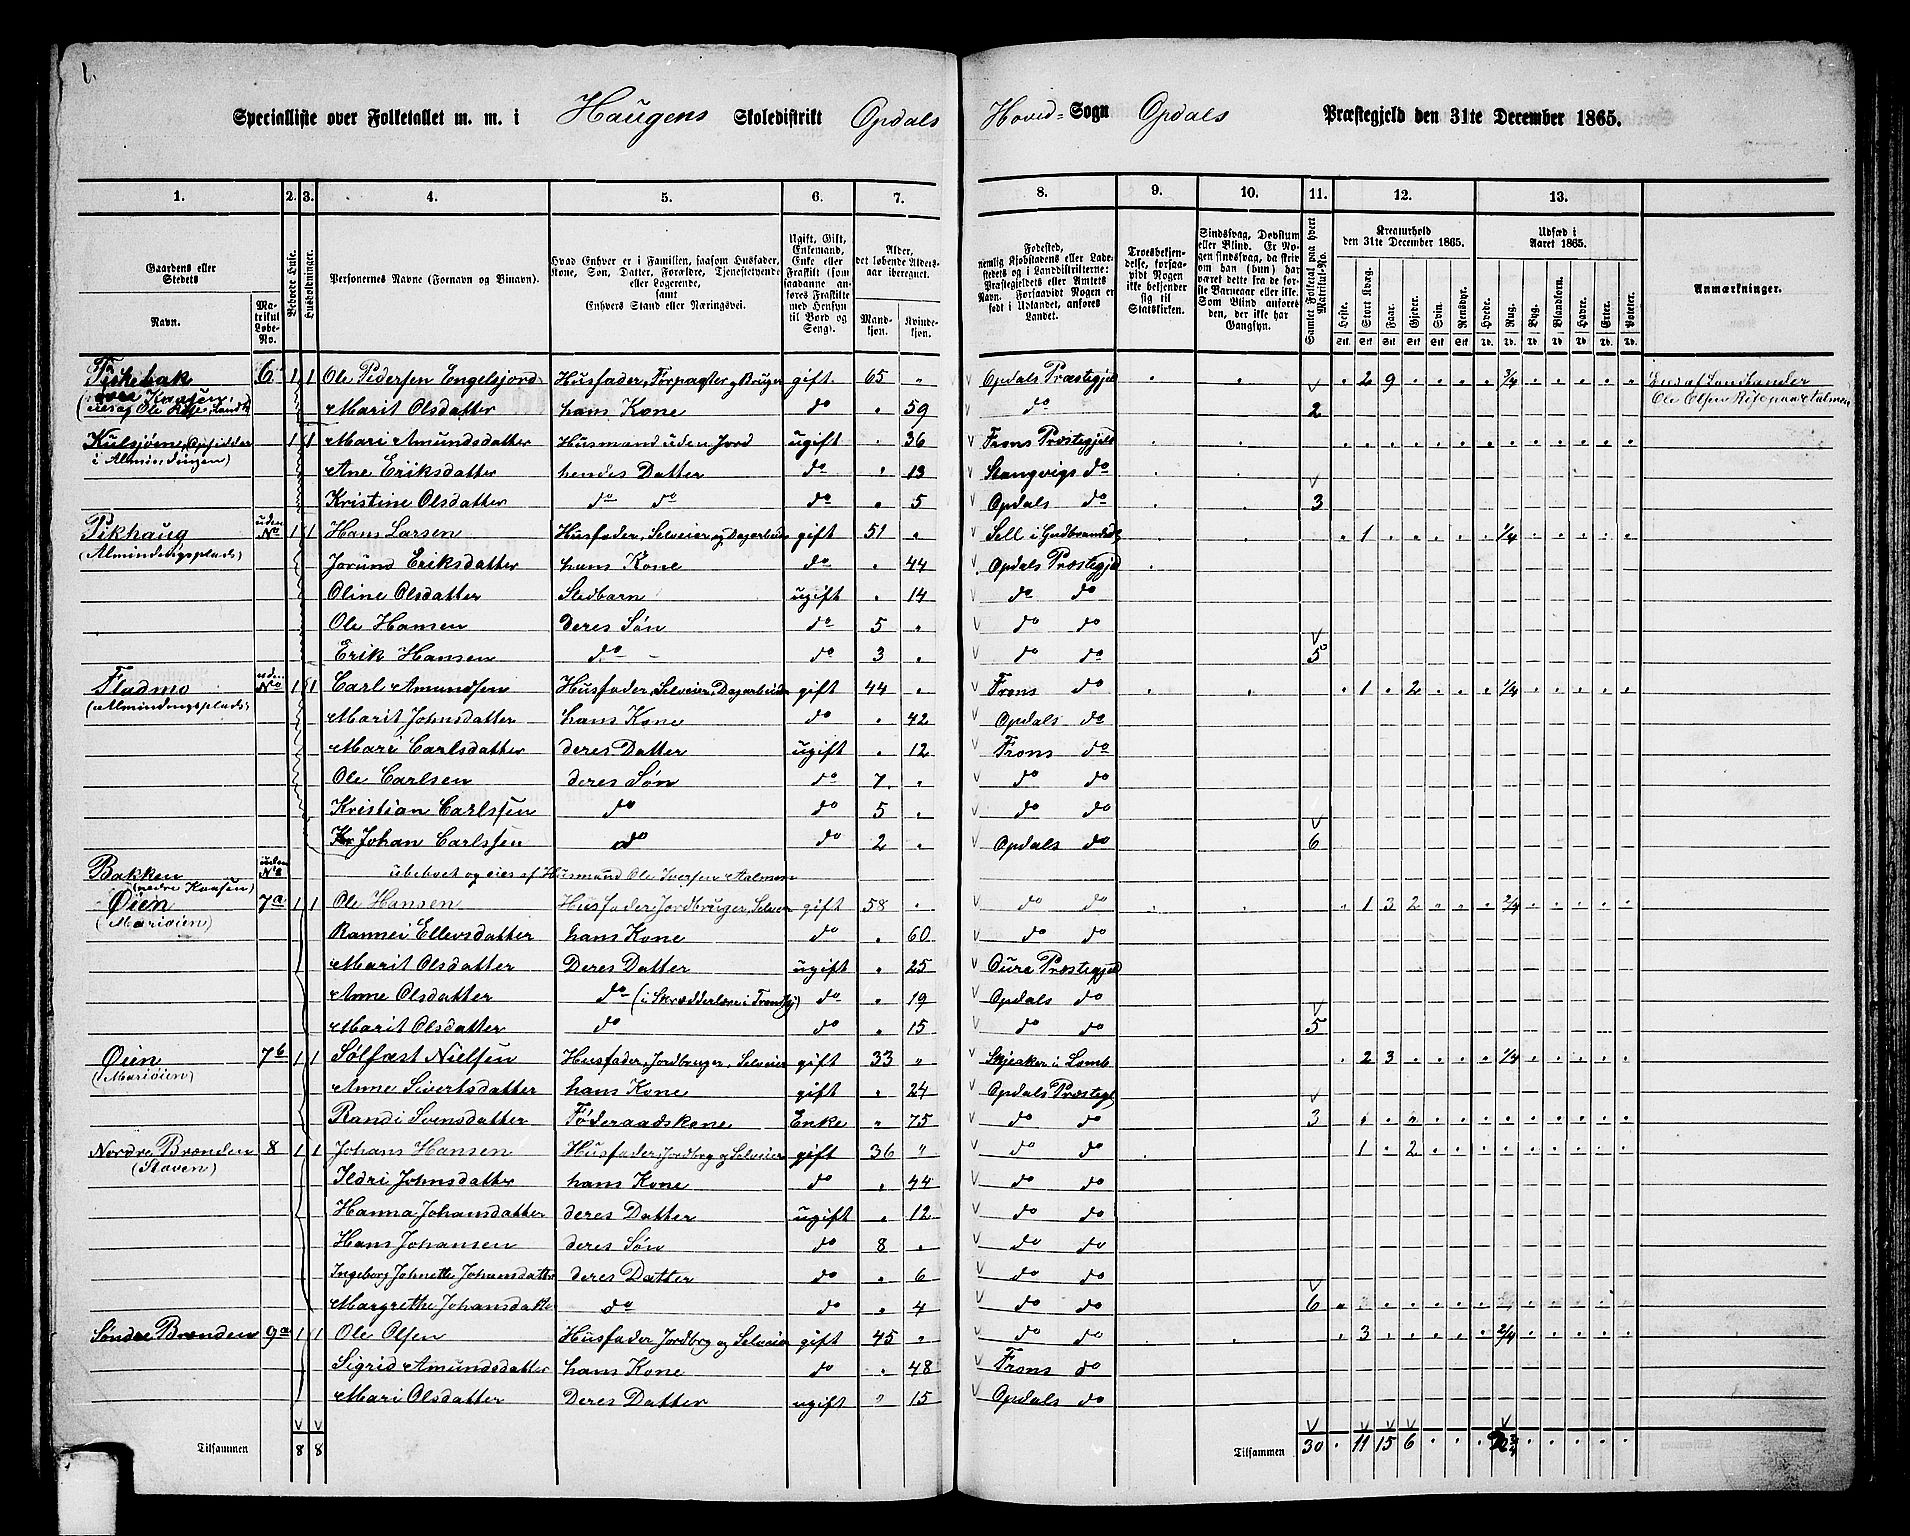 Specialliste over Folketallet m. m. i Haugens Skoledistrikt Opdals Hoved- Sogn Opdals Præstegjeld den 31te December 1865.
1. 2. 3. 4. 5. 6. 7. 8. 9. 10. 11. 12. 13.
Gaardens eller Stedets Navn.
Matrikul Løbe-No.
Beboede Huse.
Husholdninger.
Personernes Navne (Fornavn og Binavn).
Hvad Enhver er i Familien, saasom Husfader, Kone, Søn, Datter, Forældre, Tjenestetyende eller Logerende, samt Enhvers Stand eller Næringsvei.
Ugift, Gift, Enkemand, Enke eller Fraskilt (som saadanne anføres Fraskilte med Hensyn til Bord og Seng).
Alder, det løbende Aldersaar iberegnet.
Mandkjøn. Kvindekjøn.
Fødested, nemlig Kjøbstadens eller Ladestedets og i Landdistrikterne: Præstegjeldets eller Amtets Navn. Forsaavidt Nogen er født i Udlandet, anføres Landet.
Troesbekjendelse, forsaavidt Nogen ikke bekjender sig til Statskirken.
Sindssvag, Døvstum eller Blind. Er Nogen sindssvag, da skrives det fra de før i Barneaar eller ikke. Som Blind anføres den, der ikke har Gangsyn.
Samlet Folketal paa hvert Matrikul-No.
Kreaturhold den 31te December 1865.
Heste. Stort Kvæg. Faar. Gjeder. Svin. Rensdyr.
Udsæd i Aaret 1865.
Hvede. Rug. Byg. Blandkorn. Havre. Erter. Poteter.
Anmærkninger.
Fiskebæk 6 1 1 Ole Pedersen Engelsjord Husfader, Forpagter og Bruger gift 65 " Opdals Præstegjel 2 9 3/4 Ole Olsen
Marit Olsdatter hans Kone do " 59 do 2
Kulsjøen, Opsidder 1 1 Mari Amundsdatter Husmand uden Jord ugift " 36 Frons Præstegjeld
i Almindingen) Ane Eriksdatter hendes Datter do " 13 Stangvigs do
Kristine Olsdatter do do do " 5 Opdals do 3
Pikhaug uden No 1 1 Hans Larsen Husfader, Selveier og Dagarbeider gift 51 " Sell i Gudbrandsd. 1 1/4
(Almindingsplads) Jorund Eriksdatter hans Kone do " 44 Opdals Præstegjel
Oline Olsdatter Stedbarn ugift " 14 do do
Ole Hansen deres Søn do 5 " do do
Erik Hansen do do 3 " do do 5
Fladmo uden No 1 1 Carl Amundsen Husfader, Selveier, Dagarbeider gift 44 " Frons do 1 2 1/4
(Almindingsplads) Marit Johnsdatter hans Kone do " 42 Opdals do
Mari Carlsdatter deres Datter ugift " 12 Frons do
Ole Carlsen deres Søn do 7 " do do
Kristian Carlssen do do 5 " do do
Johan Carlssen do do 2 " Opdals do 6
Bakken uden No ubeboet og eies af Husmand Ole Iversen Aalmen
(nedre Kaasen)
Øien 7a 1 1 Ole Hansen Husfader, Jordbruger, Selveier gift 58 " do do 1 3 2 2/4
(Mariøien) Rannei Ellevsdatter hans Kone do " 60 do do
Marit Olsdatter Deres Datter ugift " 25 Oure Præstegjeld
Anne Olsdatter do (i Skrædderlære i Trondhj) do " 19 Opdals do
Marit Olsdatter do do " 15 do do 5
Øien 7b 1 1 Sølfæst Nielsen Husfader, Jordbruger, Selveier gift 33 " Skjeaker i Lomb 2 3 1/4
(Mariøien) Anne Sivertsdatter hans Kone gift " 24 Opdals Præstegl
Randi Svensdatter Føderaadskone Enke " 75 do do 3
Nordre Brænden 8 1 1 Johans Hansen Husfader, Jordbrg og Selveier gift 36 " do do 1 2
(Staven) Ildri Johnsdatter hans Kone do " 44 do do
Hanna Johansdatter deres Datter ugift " 12 do do
Hans Johansen deres Søn do 8 " do do
Ingeborg Johnette Johansdatter deres Datter do " 6 do do
Margrethe Johansdatte do do " 4 do do 6
Søndre Brænden 9a 1 1 Ole Olsen Husfader, Jordbrg og Selveier gift 45 " do do 3 2/4
Sigrid Amundsdatter hans Kone do " 48 Frons do
Mari Olsdatter Deres Datter ugift " 15 Opdals do
Tilsammen 8 8 Tilsammen 30 11 15 6